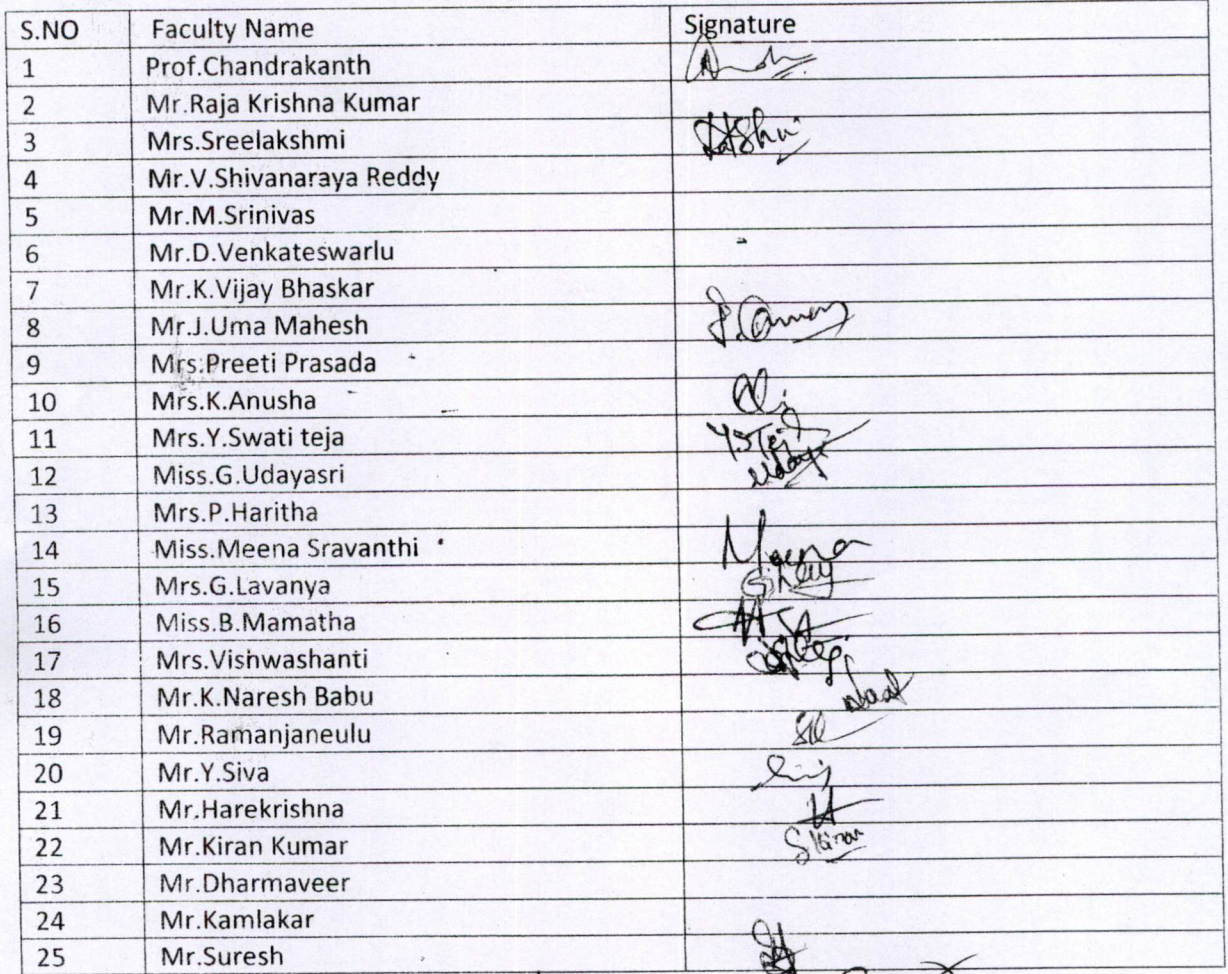 S.NO Faculty Name Signature
1 Prof.Chandrakanth
2 Mr.Raja Krishna Kumar
3 Mrs.Sreelakshmi
4 Mr.V.Shivanaraya Reddy
5 Mr.M.Srinivas
6 Mr.D.Venkateswarlu
7 Mr.K.Vijay Bhaskar
8 Mr.J.Uma Mahesh
9 Mrs.Preeti Prasada
10 Mrs.K.Anusha
11 Mrs.Y.Swati teja Y.S Tej
12 Miss.G.Udayasri Uday
13 Mrs.P.Haritha
14 Miss.Meena Sravanthi Meena
15 Mrs.G.Lavanya
16 Miss.B.Mamatha
17 Mrs.Vishwashanti
18 Mr.K.Naresh Babu
19 Mr.Ramanjaneulu
20 Mr.Y.Siva
21 Mr.Harekrishna
22 Mr.Kiran Kumar S Kiran
23 Mr.Dharmaveer
24 Mr.Kamlakar
25 Mr.Suresh